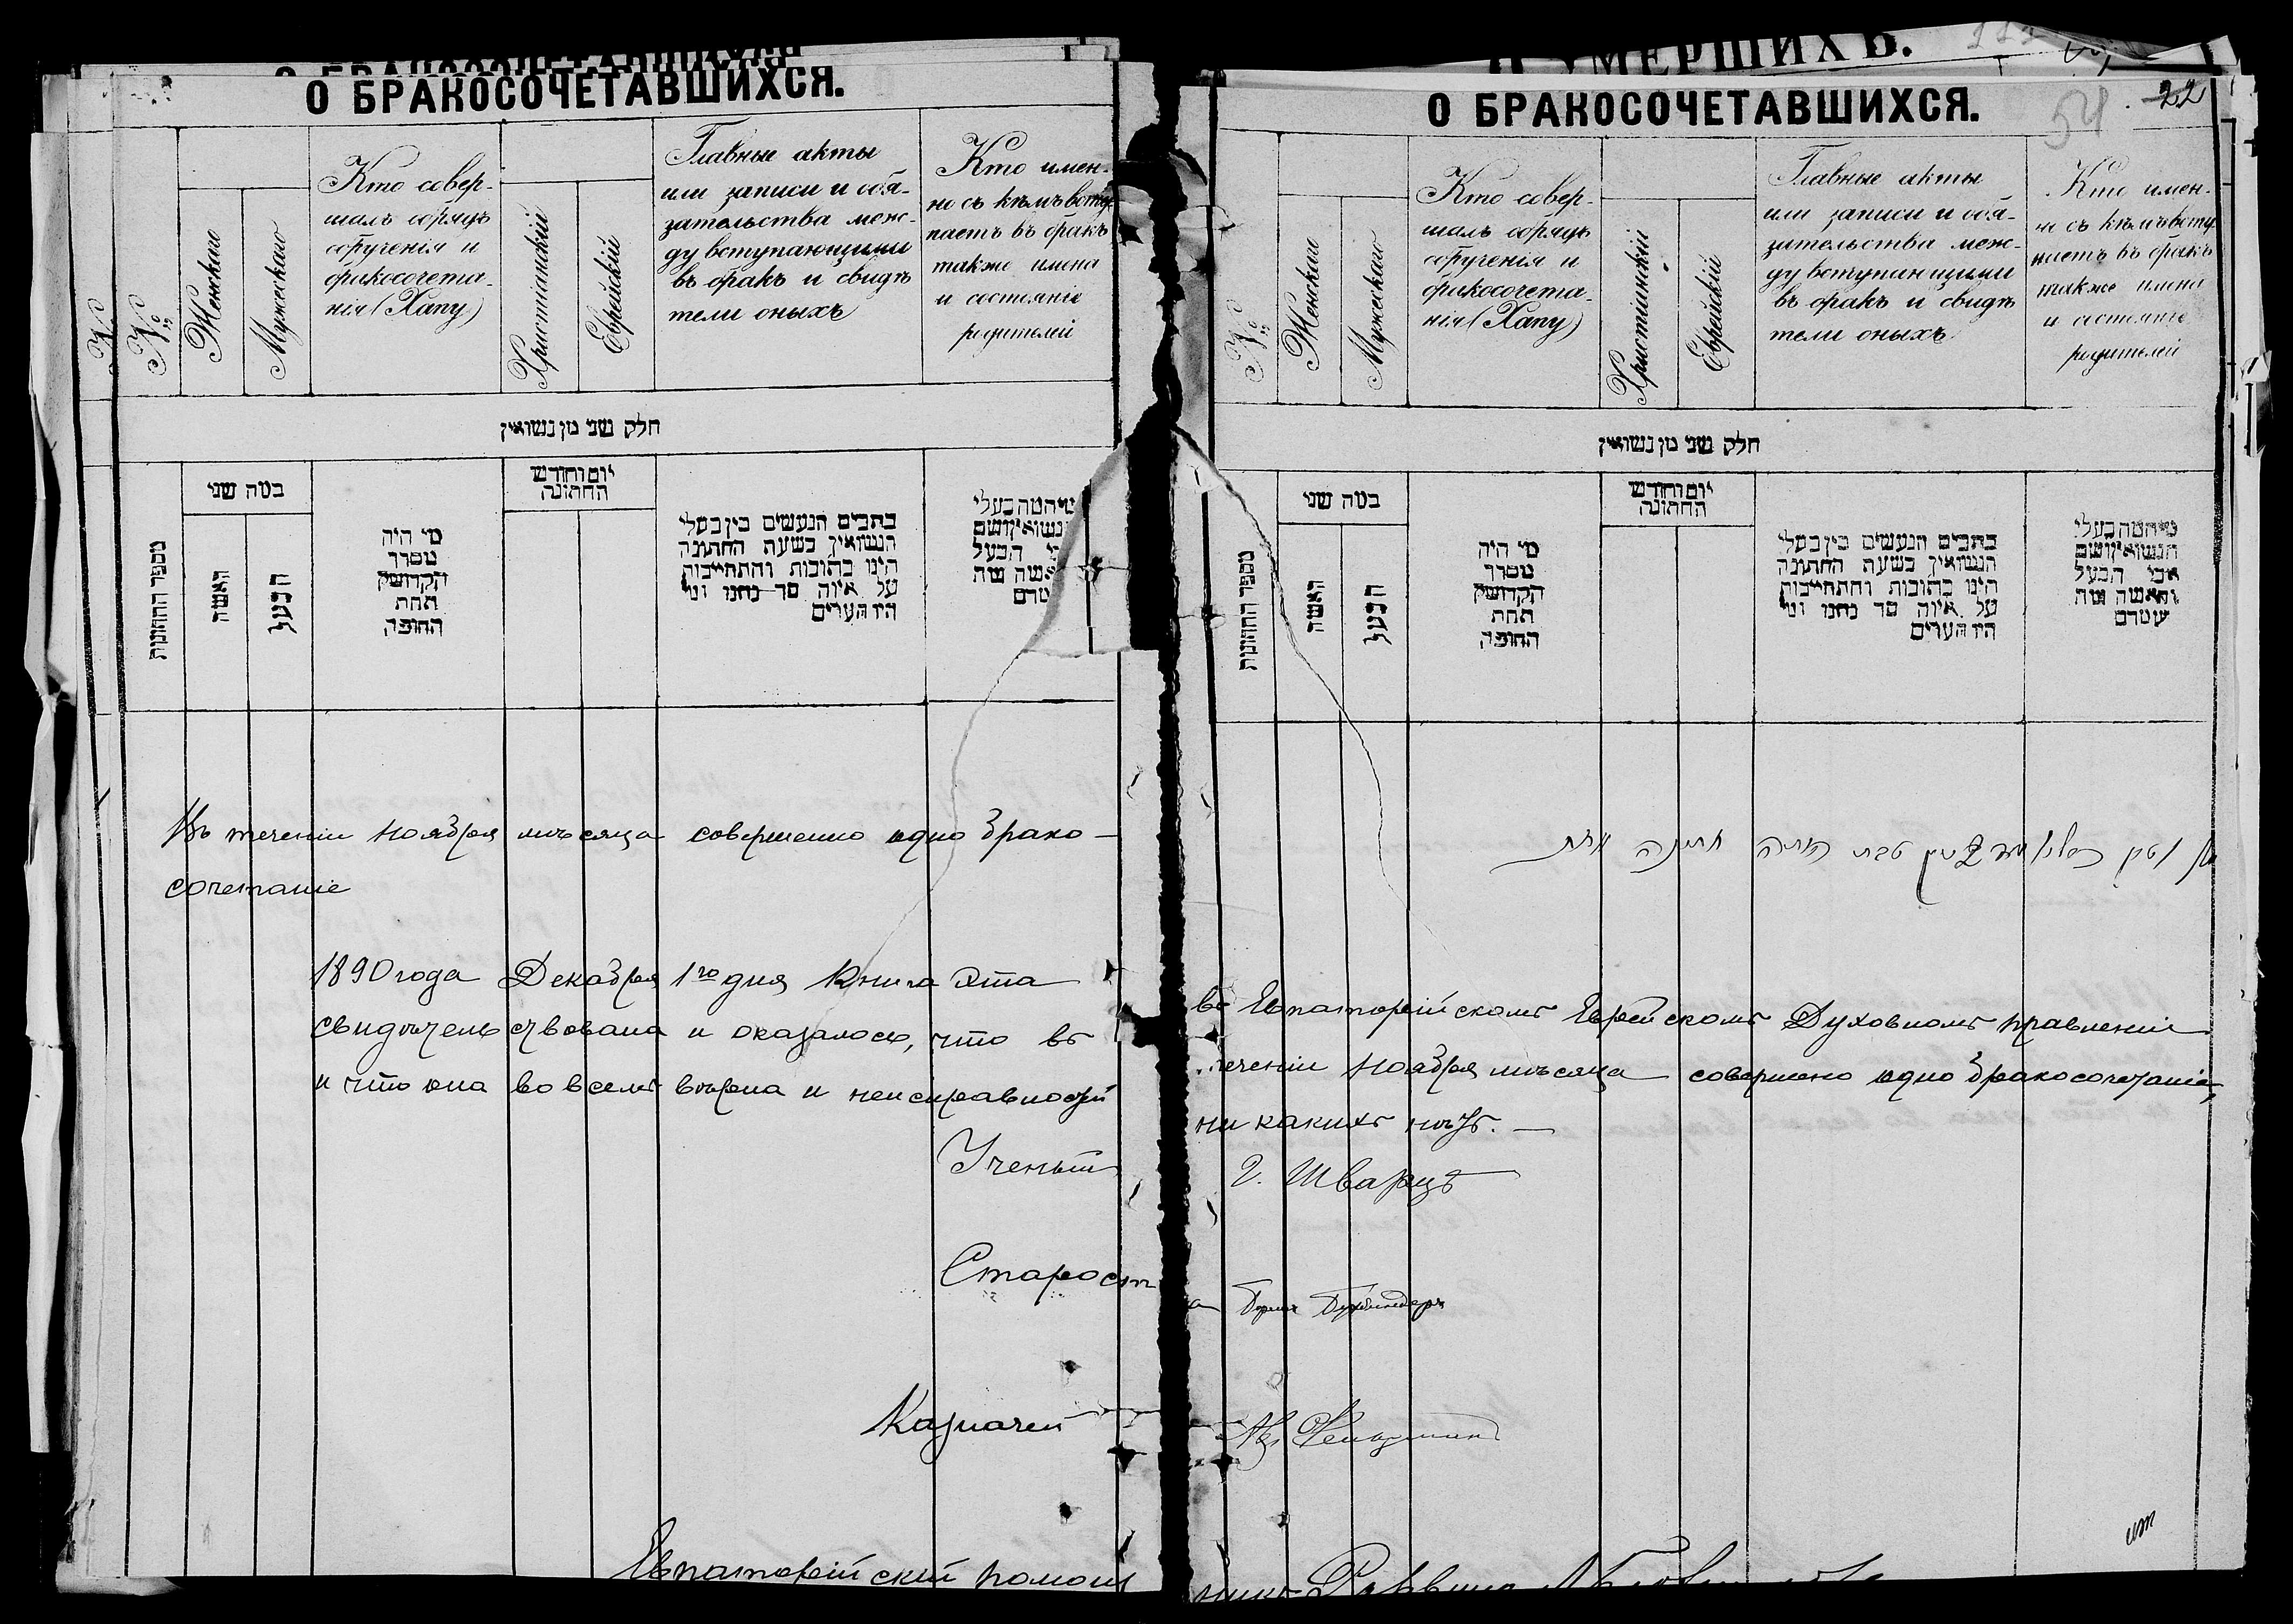 О БРАКОСОЧЕТАВШИХСЯ.
№
№
Женскаго
Мужескаго
Кто совер-
шалъ обрядъ
обрученія и
бракосочета-
нія (Хапу)
Христіанскій
Еврейскій
Главные акты
или записи и обя-
зательства меж-
ду вступающими
въ бракъ и свидѣ
тели оныхъ
Кто имен-
но съ кѣмъ вступ
паетъ въ бракъ
также имена
и состояніе
родителей
חלק שני מן נשואין
מספר החתונות
במה שני
האשה
הבעל
מי היה
מסדר
הקדושין
תחת
החופה
יום וחודש
החתונה
כתבים הנעשים בין בעלי
הנשואין בשעת החתונה
הינו כתובות והתחייבות
על איזה סך נתנו ומי
היו העדים
Въ теченіи Ноября мѣсяца совершено одно брако-
сочетаніе
1890 года Декабря 1го дня Книга эта
свидѣтельствована и оказалось, что въ
и что она во всемъ вѣрна и неисправностей
Ученый
Старост
Казначей
Евпаторійскій помощ
О УМЕРШИХЪ.
О БРАКОСОЧЕТАВШИХСЯ.
54
22
№
Женскаго
Мужескаго
Кто совер-
шалъ обрядъ
обрученія и
бракосочета-
нія (Хапу)
Христіанскій
Еврейскій
Главные акты
или записи и обя-
зательства меж-
ду вступающими
въ бракъ и свидѣ
тели оныхъ
Кто имен-
но съ кѣмъ всту
паетъ въ бракъ
также имена
и состояніе
родителей
חלק שני מן נשואין
מספר החתונות
במה שני
האשה
הבעל
מי היה
מסדר
הקדושין
תחת
החופה
יום וחודש
החתונה
כתבים הנעשים בין בעלי
הנשואין בשעת החתונה
הינו כתובות והתחייבות
על איזה סך נתנו ומי
היו העדים
מי המה בעלי
הנשואין ושם
אבי הבעל
והאשה ומה
שמם
въ Евпаторійскомъ Еврейскомъ Духовномъ правленіи
теченіи Ноября мѣсяца совершено одно бракосочетаніе,
ни какихъ нѣтъ.
Г. Шварцъ
а